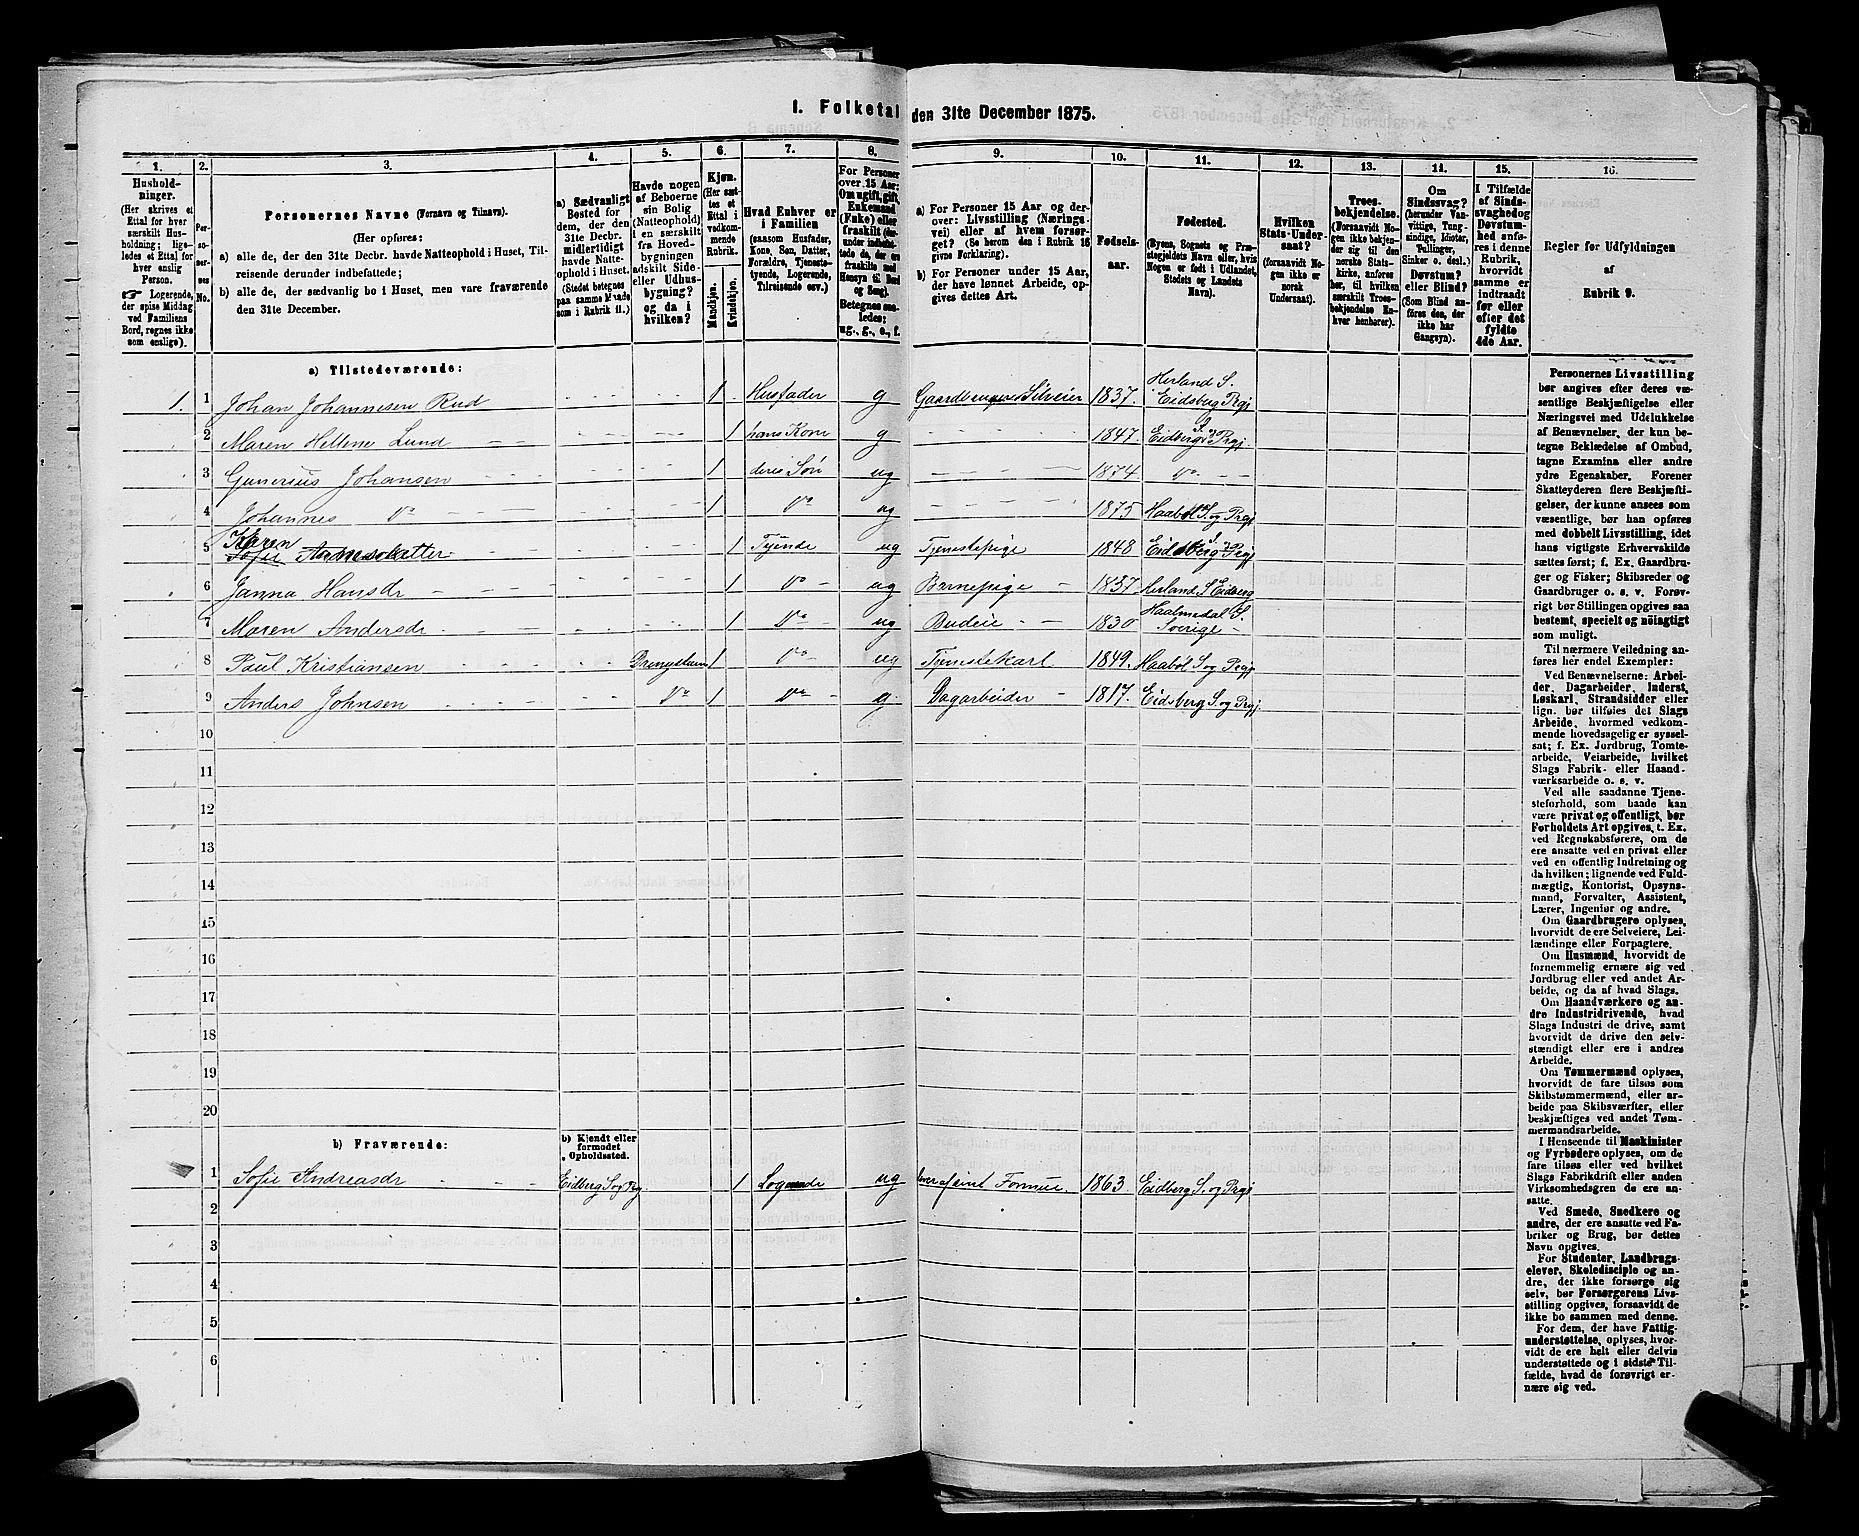 1. Folketal den 31te December 1875.
1.
Hushold-
ninger.
(Her skrives et
Ettal for hver
særskilt Hus-
holdning; lige-
ledes et Ettal for
hver enslig
Person.
☞ Logerende,
der spise Middag
ved Familiens
Bord, regnes ikke
som enslige).
2.
Per-
so-
ner-
nes
No.
3.
Personernes Navne (Fornavn og Tilnavn).
(Her opføres:
a) alle de, der den 31te Decbr. havde Natteophold i Huset, Til-
reisende derunder indbefattede;
b) alle de, der sædvanlig bo i Huset, men vare fraværende
den 31te December.
4.
a) Sædvanligt
Bosted for
dem, der den
31te Decbr.
midlertidigt
havde Natte-
ophold i Huset.
(Stedet betegnes
paa samme Maade
som i Rubrik 11.)
5.
Havde nogen
af Beboerne
sin Bolig
(Natteophold)
i en særskilt
fra Hoved-
bygningen
adskilt Side-
eller Udhus-
bygning?
og da i
hvilken?
6.
Kjøn.
(Her sæt-
tes et
Ettal i
vedkom-
mende
Rubrik.
Mandkjøn.
Kvindekjøn.
7.
Hvad Enhver er
i Familien
(saasom Husfader,
Kone, Søn, Datter,
Forældre, Tjeneste-
tyende, Logerende,
Tilreisende osv.)
8.
For Personer
over 15 Aar:
Om ugift, gift,
Enkemand
(Enke) eller
fraskilt
Betegnes saa-
ledes:
ug., g., e., f.
9.
a) For Personer 15 Aar og der-
over: Livsstilling (Nærings-
vei) eller af hvem forsør-
get? (Se herom den i Rubrik 16
givne Forklaring).
b) For Personer under 15 Aar,
der have lønnet Arbeide, op-
gives dettes Art.
10.
Fødsels-
aar.
11.
Fødested.
(Byens, Sognets og Præ-
stegjeldets Navn eller, hvis
Nogen er født i Udlandet,
Stedets og Landets
Navn).
12.
Hvilken
Stats-Under-
saat?
(forsaavidt No-
gen ikke er
norsk
Undersaat).
13.
Troes-
bekjendelse.
(Forsaavidt No-
gen ikke bekjen-
der sig til den
norske Stats-
kirke, anføres
her, til hvilken
særskilt Troes-
bekjendelse En-
hver henhører).
14.
Om
Sindssvag?
(herunder Van-
vittige, Tung-
sindige, Idioter,
Tullinger,
Sinker o. desl.)
Døvstum?
eller Blind?
(Som Blind an-
føres den, der
ikke har
Gangsyn).
15.
I Tilfælde
af Sinds-
svaghed og
Døvstum-
hed anfø-
res i denne
Rubrik,
hvorvidt
samme er
indtraadt
før eller
efter det
fyldte
4de Aar.
16.
Regler for Udfyldningen
af
Rubrik 9.
a) Tilstedeværende:
1. 1 Johan Johannesen Rud 1 Husfader g Gaardbruger Selveier 1837. Herland S. Eidsberg Prgj
2 Maren Hellene Lund 1 hans Kone g 1847. Eidberg S. Prgj
3 Gunerius Johansen 1 deres Søn ug 1874 Do
4 Johannes Do 1 Do ug 1875 Haabøl S. og Prgj
5 Karen 1 Tyende ug Tjenestepige 1848 Eidsberg S. Prgj
6 Janna Hansdr 1 Do ug Barnepige 1857 Herland S. Eidberg
7 Maren Andersdr 1 Do ug Budeie 1830 Sverige
8 Paul Kristiansen 1 Do ug Tjenestekarl 1849. Haabøl S. og Prgj
9 Anders Johnsen Do 1 Do g. Dagarbeider 1817. Eidsberg S. og Prgj.
10
11
12
13
14
15
16
17
18
19
20
b) Fraværende:
b) Kjendt eller
formodet
Opholdssted.
1 Sofie Andreasdr Eidberg S og Prg. 1 Logerende ug Formue. 1863. Eidberg S. og Prgj
2
3
4
5
6
Personernes Livsstilling
bør angives efter deres væ-
sentlige Beskjæftigelse eller
Næringsvei med Udelukkelse
af Benævnelser, der kun be-
tegne Beklædelse af Ombud,
tagne Examina eller andre
ydre Egenskaber. Forener
Skatteyderen flere Beskjæfti-
gelser, der kunne ansees som
væsentlige, bør han opføres
med dobbelt Livsstilling, idet
hans vigtigste Erhvervskilde
sættes først; f. Ex. Gaardbru-
ger og Fisker; Skibsreder og
Gaardbruger o. s. v. Forøv-
rigt bør Stillingen opgives saa
bestemt, specielt og nøiagtigt
som muligt.
Til nærmere Veiledning an-
føres her endel Exempler:
Ved Benævnelserne: Arbei-
der, Dagarbeider, Inderst,
Løskarl, Strandsidder eller
lign. bør tilføies det Slags
Arbeide, hvormed vedkom-
mende hovedsagelig er syssel-
sat; f. Ex. Jordbrug, Tomte-
arbeide, Veiarbeide, hvilket
Slags Fabrik- eller Haand-
værksarbeide o. s. v.
Ved alle saadanne Tjene-
steforhold, som baade kan
være privat og offentligt, bør
Forholdets Art opgives, t. Ex.
ved Regnskabsførere, om de
ere ansatte ved en privat eller
ved en offentlig Indretning og
da hvilken; lignende ved Fuld-
mægtig, Kontorist, Opsyns-
mand, Forvalter, Assistent,
Lærer, Ingeniør og andre.
Om Gaardbrugere oplyses,
hvorvidt de ere Selveiere, Lei-
lændinge eller Forpagtere.
Om Husmænd, hvorvidt de
fornemmelig ernære sig ved
Jordbrug eller ved andet Ar-
beide, og da af hvad Slags.
Om Haandværkere og an-
dre Industridrivende, hvad
Slags Industri de drive, samt
hvorvidt de drive den selv-
stændigt eller ere i andres
Arbeide.
Om Tømmermænd oplyses,
hvorvidt de fare tilsøs som
Skibstømmermænd, eller ar-
beide paa Skibsværfter, eller
beskjæftiges ved andet Tøm-
mermandsarbeide.
I Henseende til Maskinister
og Fyrbødere oplyses, om de
fare tilsøs eller ved hvilket
Slags Fabrikdrift eller anden
Virksomhedsgren de ere an-
satte.
Ved Smede, Snedkere og
andre, der ere ansatte ved Fa-
briker og Brug, bør dettes
Navn opgives.
For Studenter, Landbrugs-
elever, Skoledisciple og an-
dre, der ikke forsørge sig
selv, bør Forsørgerens Livs-
stilling opgives, forsaavidt de
ikke bo sammen med denne.
For dem, der have Fattig-
understøttelse, oplyses, hvor-
vidt de ere helt eller delvis
understøttede og i sidste Til-
fælde, hvad de forøvrigt er-
nære sig ved.